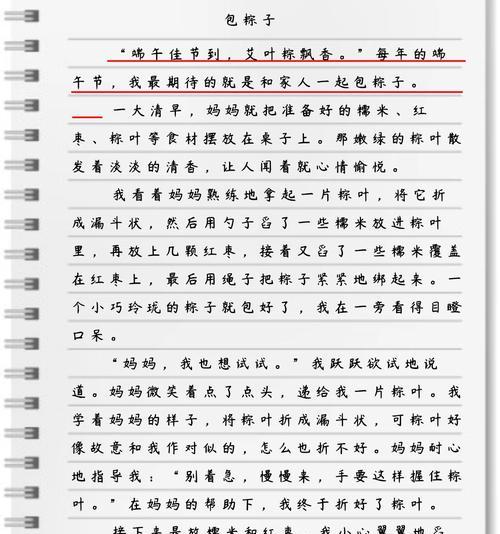 包粽子
“端午佳节到，艾叶粽飘香。”每年的端
午节，我最期待的就是和家人一起包粽子。
一大清早，妈妈就把准备好的糯米、红
枣、粽叶等食材摆放在桌子上。那嫩绿的粽叶散
发着淡淡的清香，让人闻着就心情愉悦。
我看着妈妈熟练地拿起一片粽叶，将它折
成漏斗状，然后用勺子舀了一些糯米放进粽叶
里，再放上几颗红枣，接着又舀了一些糯米覆盖
在红枣上，最后用绳子把粽子紧紧地绑起来。一
个小巧玲珑的粽子就包好了，我在一旁看得目瞪
口呆。
“妈妈，我也想试试。”我跃跃欲试地说
道。妈妈微笑着点了点头，递给我一片粽叶。我
学着妈妈的样子，将粽叶折成漏斗状，可粽叶好
像故意和我作对似的，怎么也折不好。妈妈耐心
地指导我：“别着急，慢慢来，手要这样握住粽
叶。”在妈妈的帮助下，我终于折好了粽叶。
接下来是放糯米和红枣，我小心翼翼地舀